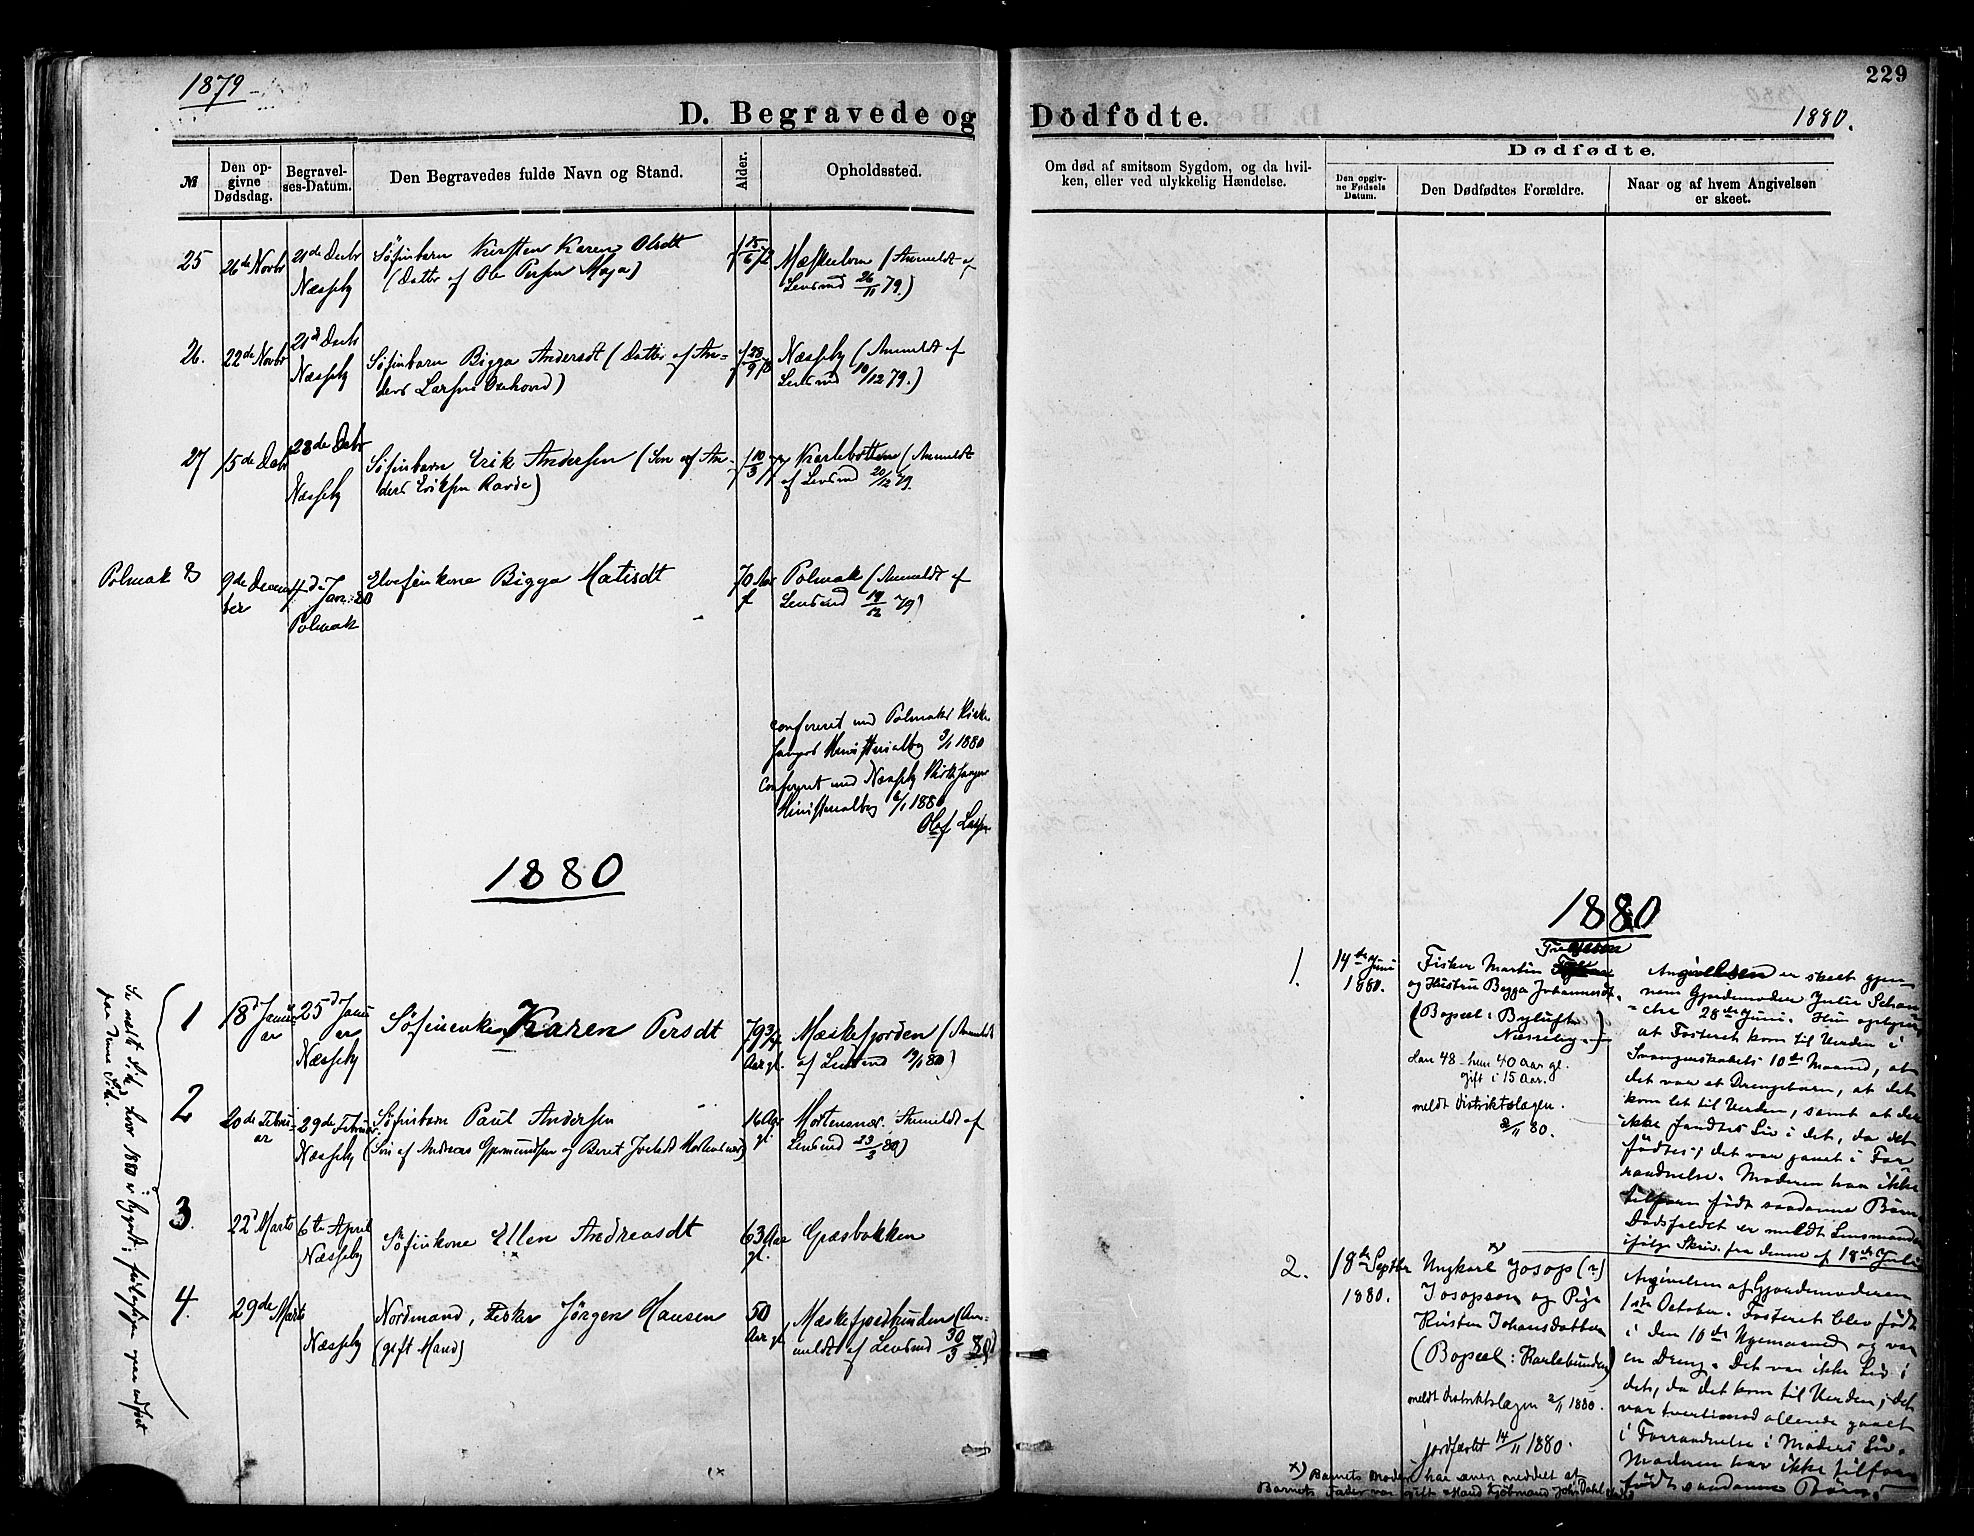 1879
D. Begravede og
№
Den op-
givne
Dødsdag.
Begravel-
ses-Datum.
Den Begravedes fulde Navn og Stand.
Alder.
Opholdssted.
25
26de Novbr
21de Decbr
Næsseby
Søfinbarn Kirsten Karen Olsdt
(Datter af Ole Persen Maja)
f 15/6 72
(Anmeldt af
Lensmd 26/11 79.)
26.
22de Novbr
21d Decbr
Næsseby
Søfinbarn Bigga Andersdt (Datter af An-
ders Larsen
f 28/9 78
Næsseby (Anmeldt af
Lensmd 10/12 79.)
27
15de Decbr
23de Decbr
Næsseby
Søfinbarn Erik Andersen (Søn af An-
ders Eriksen Ravde)
f 10/3 77
Karlebotten (Anmeldt
af Lensmd 20/12 79.
Polmak 8
9de Decem-
ber
4d Jan. 80
Polmak
Elvefinkone Bigga Matisdt
70 Aar
Polmak (Anmeldt af
Lensmd 19/12 79)
confereret med Polmaks Kirke-
sangers Ministerialbog 3/1 1880
Confereret med Næsseby Kirkesangers
Ministerialbog 6/1 1880
Olaf
1880
1
18d Janu-
ar
25d Janu
ar
Næsseby
Søfinenke Karen Persdt
79 3/4
Aar gl.
Mæskefjorden (Anmeldt
af Lensmd 19/1 80)
2
20de Febru-
ar
29de Februar
Næsseby
Søfinbarn Paul Andersen
(Søn af Andreas Gjermundsen og Beret
16 Aar
gl.
Mortensnæs. Anmeldt af
Lensmd 23/2 80)
3.
22d Marts
6te April
Næsseby
Søfinkone Ellen Andreasdt
63 Aar
gl.
Græsbakken
4.
29de Marts
Næsseby
Nordmand, Fisker Jørgen Hansen
(gift Mand)
50
Aar gl.
(An-
meldt af Lensmd 30/3 80)
229
1880.
Dödfödte.
Om død af smitsom Sygdom, og da hvil-
ken, eller ved ulykkelig Hændelse.
Dødfødte.
Den opgiv-
ne Fødsels
Datum.
Den Dødfødtes Forældre.
Naar og af hvem Angivelsen
er skeet.
1880
1.
14de Juni
1880.
Fisker Martin
og Hustru Bigga Johannesdt.
(Bopæl: Byluft
Næsseby.)
han 48 - hun 40 Aar gl.
gift i 15 Aar.
meldt Distriktslægen.
2/11 80.
Angivelsen er skeet gjen-
nem Gjordemoder Julie Schan-
che 28de Juni. Hun oplyser
at Fosteret kom til Verden i
Svangerskabets 10de Maaned, at
det var et Drengebarn, at det
kom let til Verden, samt at der
ikke fandtes Liv i det, da det
fødtes; det var gaaet i For
raadnelse. Moderen har ikke
tilforn født saadanne Børn.
Dødsfaldet er meldt Lensmanden
ifølge Skriv. fra denne af 18de Juli
2.
18de Septbr
1880.
Ungkarl x) Josop (?)
Josopsen og Pige
Kirsten Johansdatter
(Bopæl: Karlebunden)
meldt Distriktslægen 2/11 1880.
jordfæstet 14/11 1880.
Angivelsen af Gjordemoderen
1ste October. Fosteret blev født
i den 10de Ugemaaned og var
en Dreng. Det var ikke Liv i
det, da det kom til Verden; det
var tvertimod allerede gaaet
i Forraadnelse i Moders Liv.
Moderen har ikke tilforn
født saadanne Børn.
x) Barnets Moder har senere meddelt at
Barnets Fader var gift Mand Kjøbmand John Dahl